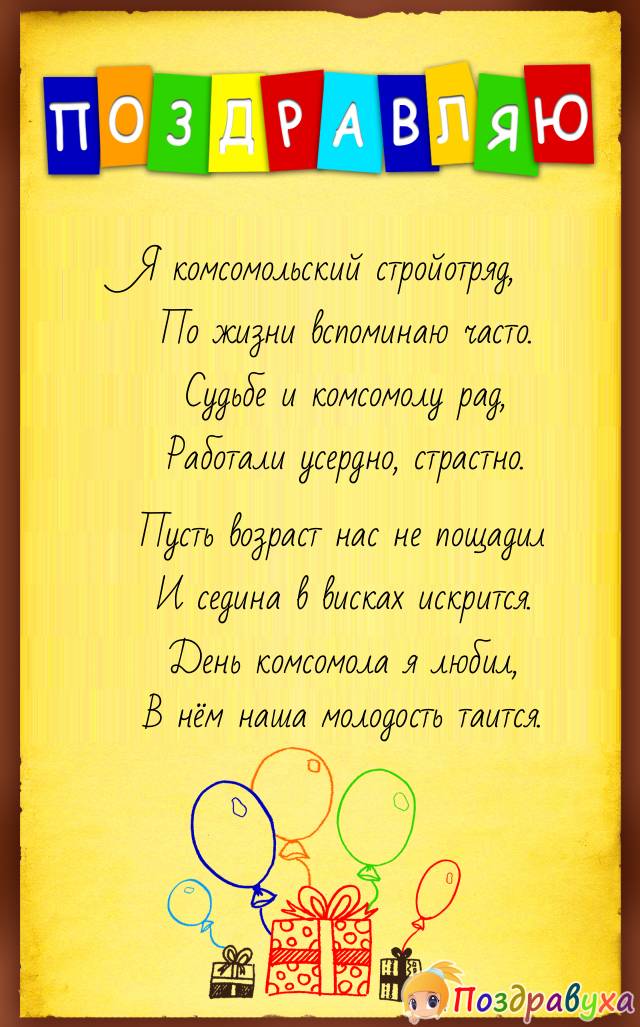 ПОЗДРАВЛЯЮ
Я комсомольский стройотряд,
По жизни вспоминаю часто.
Судьбе и комсомолу рад,
Работали усердно, страстно.
Пусть возраст нас не пощадил
И седина в висках искрится.
День комсомола я любил,
В нём наша молодость таится.
Поздравуха